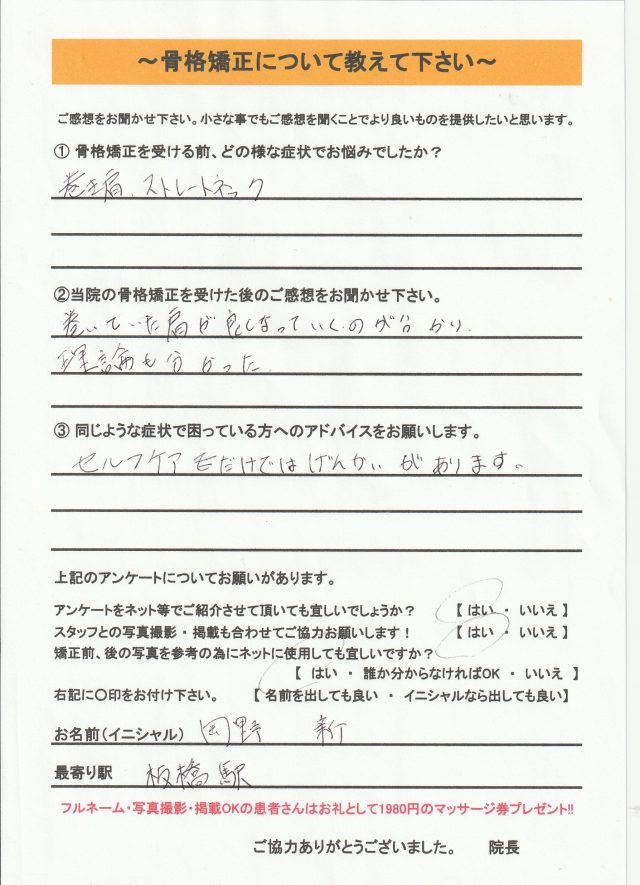 ～骨格矯正について教えて下さい～
ご感想をお聞かせ下さい。小さな事でもご感想を聞くことでより良いものを提供したいと思います。
① 骨格矯正を受ける前、どの様な症状でお悩みでしたか？
巻き肩、ストレートネック
②当院の骨格矯正を受けた後のご感想をお聞かせ下さい。
巻いていた肩が良くなっていくのが分かり、
理論も分かった。
③ 同じような症状で困っている方へのアドバイスをお願いします。
セルフケアだけではげんかいがあります。
上記のアンケートについてお願いがあります。
アンケートをネット等でご紹介させて頂いても宜しいでしょうか？ 【 はい ・ いいえ 】
スタッフとの写真撮影・掲載も合わせてご協力お願いします！ 【 はい ・ いいえ 】
矯正前、後の写真を参考の為にネットに使用しても宜しいですか？
【 はい ・ 誰か分からなければOK ・ いいえ 】
右記に〇印をお付け下さい。 【 名前を出しても良い ・ イニシャルなら出しても良い】
お名前（イニシャル） 岡野 新
最寄り駅 板橋駅
フルネーム・写真撮影・掲載OKの患者さんはお礼として1980円のマッサージ券プレゼント!!
ご協力ありがとうございました。 院長